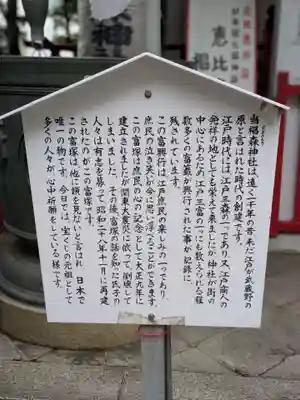 当椙森神社は遠く一千年の昔、未だ江戸が武蔵野の
原と言はれた時代の創建です。
江戸時代には江戸三森の一つであり又江戸商人の
発祥の地としても栄えて来ましたが神社が街の
中心にあるため、江戸三富の一つにも数えられる程
数多くの富籤が興行された事が記録に
残されています。
この富興行は江戸庶民の楽しみの一つであり、
庶民の泣き笑いが今に思い浮べることができます。
この富塚は庶民の心の記念として大正九年に
建立されましたが関東大震災に依って倒壊して
しまいました。其後富塚の話を知った氏子の
人々は有志を募って昭和二十八年十一月に再建
されたのがこの富塚です。
この富塚は他に類を見ないと言はれ日本で
唯一の物です。今日では、宝くじの元祖として
多くの人々が心中祈願をしている様です。
恵比